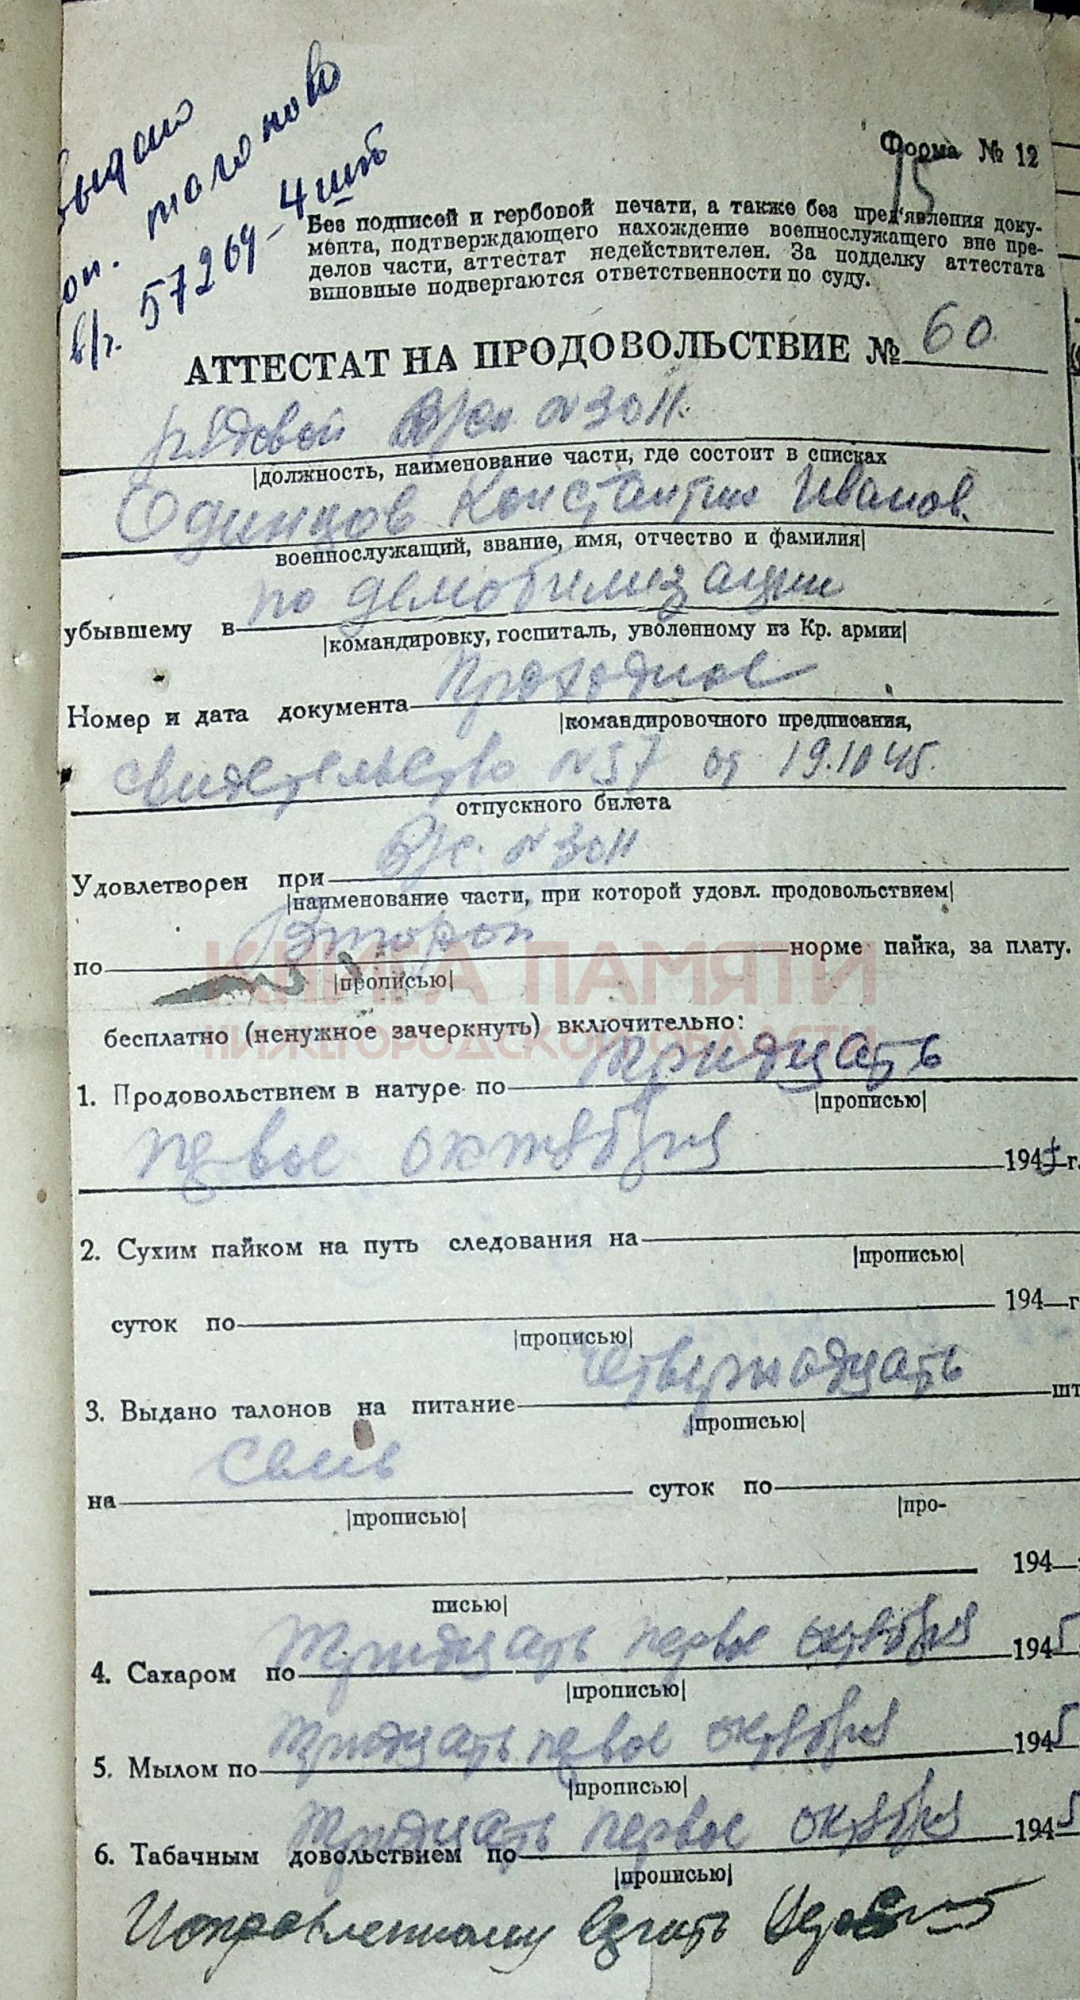 выдано
доп. талонов
в/ч. 57264 - 4 шт
Форма № 12
15
Без подписей и гербовой печати, а также без пред'явления доку-
мента, подтверждающего нахождение военнослужащего вне пре-
делов части, аттестат недействителен. За подделку аттестата
виновные подвергаются ответственности по суду.
АТТЕСТАТ НА ПРОДОВОЛЬСТВИЕ № 60
рядовой № 3011.
|должность, наименование части, где состоит в списках
Одинцов Константин Иванов.
военнослужащий, звание, имя, отчество и фамилия|
убывшему в по демобилизации
|командировку, госпиталь, уволенному из Кр. армии|
Номер и дата документа Проходное
|командировочного предписания,
свидетельство №57 от 19.10 45.
отпускного билета
Удовлетворен при № 3011
|наименование части, при которой удовл. продовольствием|
по Второй норме пайка, за плату.
|прописью|
КНИГА ПАМЯТИ
НИЖЕГОРОДСКОЙ ОБЛАСТИ
бесплатно (ненужное зачеркнуть) включительно:
1. Продовольствием в натуре по тридцать
|прописью|
певое октября 1945 г.
2. Сухим пайком на
путь следования на
|прописью|
суток по 194 г
|прописью|
3. Выдано талонов на питание четырнадцать шт
|прописью|
на семь суток по
|прописью| |про-
194
писью|
4. Сахаром по тридцать первое октября 1945
|прописью|
5. Мылом по тридцать певое октября 1945
|прописью|
6. Табачным довольствием по тридцать первое октября 1945
|прописью|
Исправленному